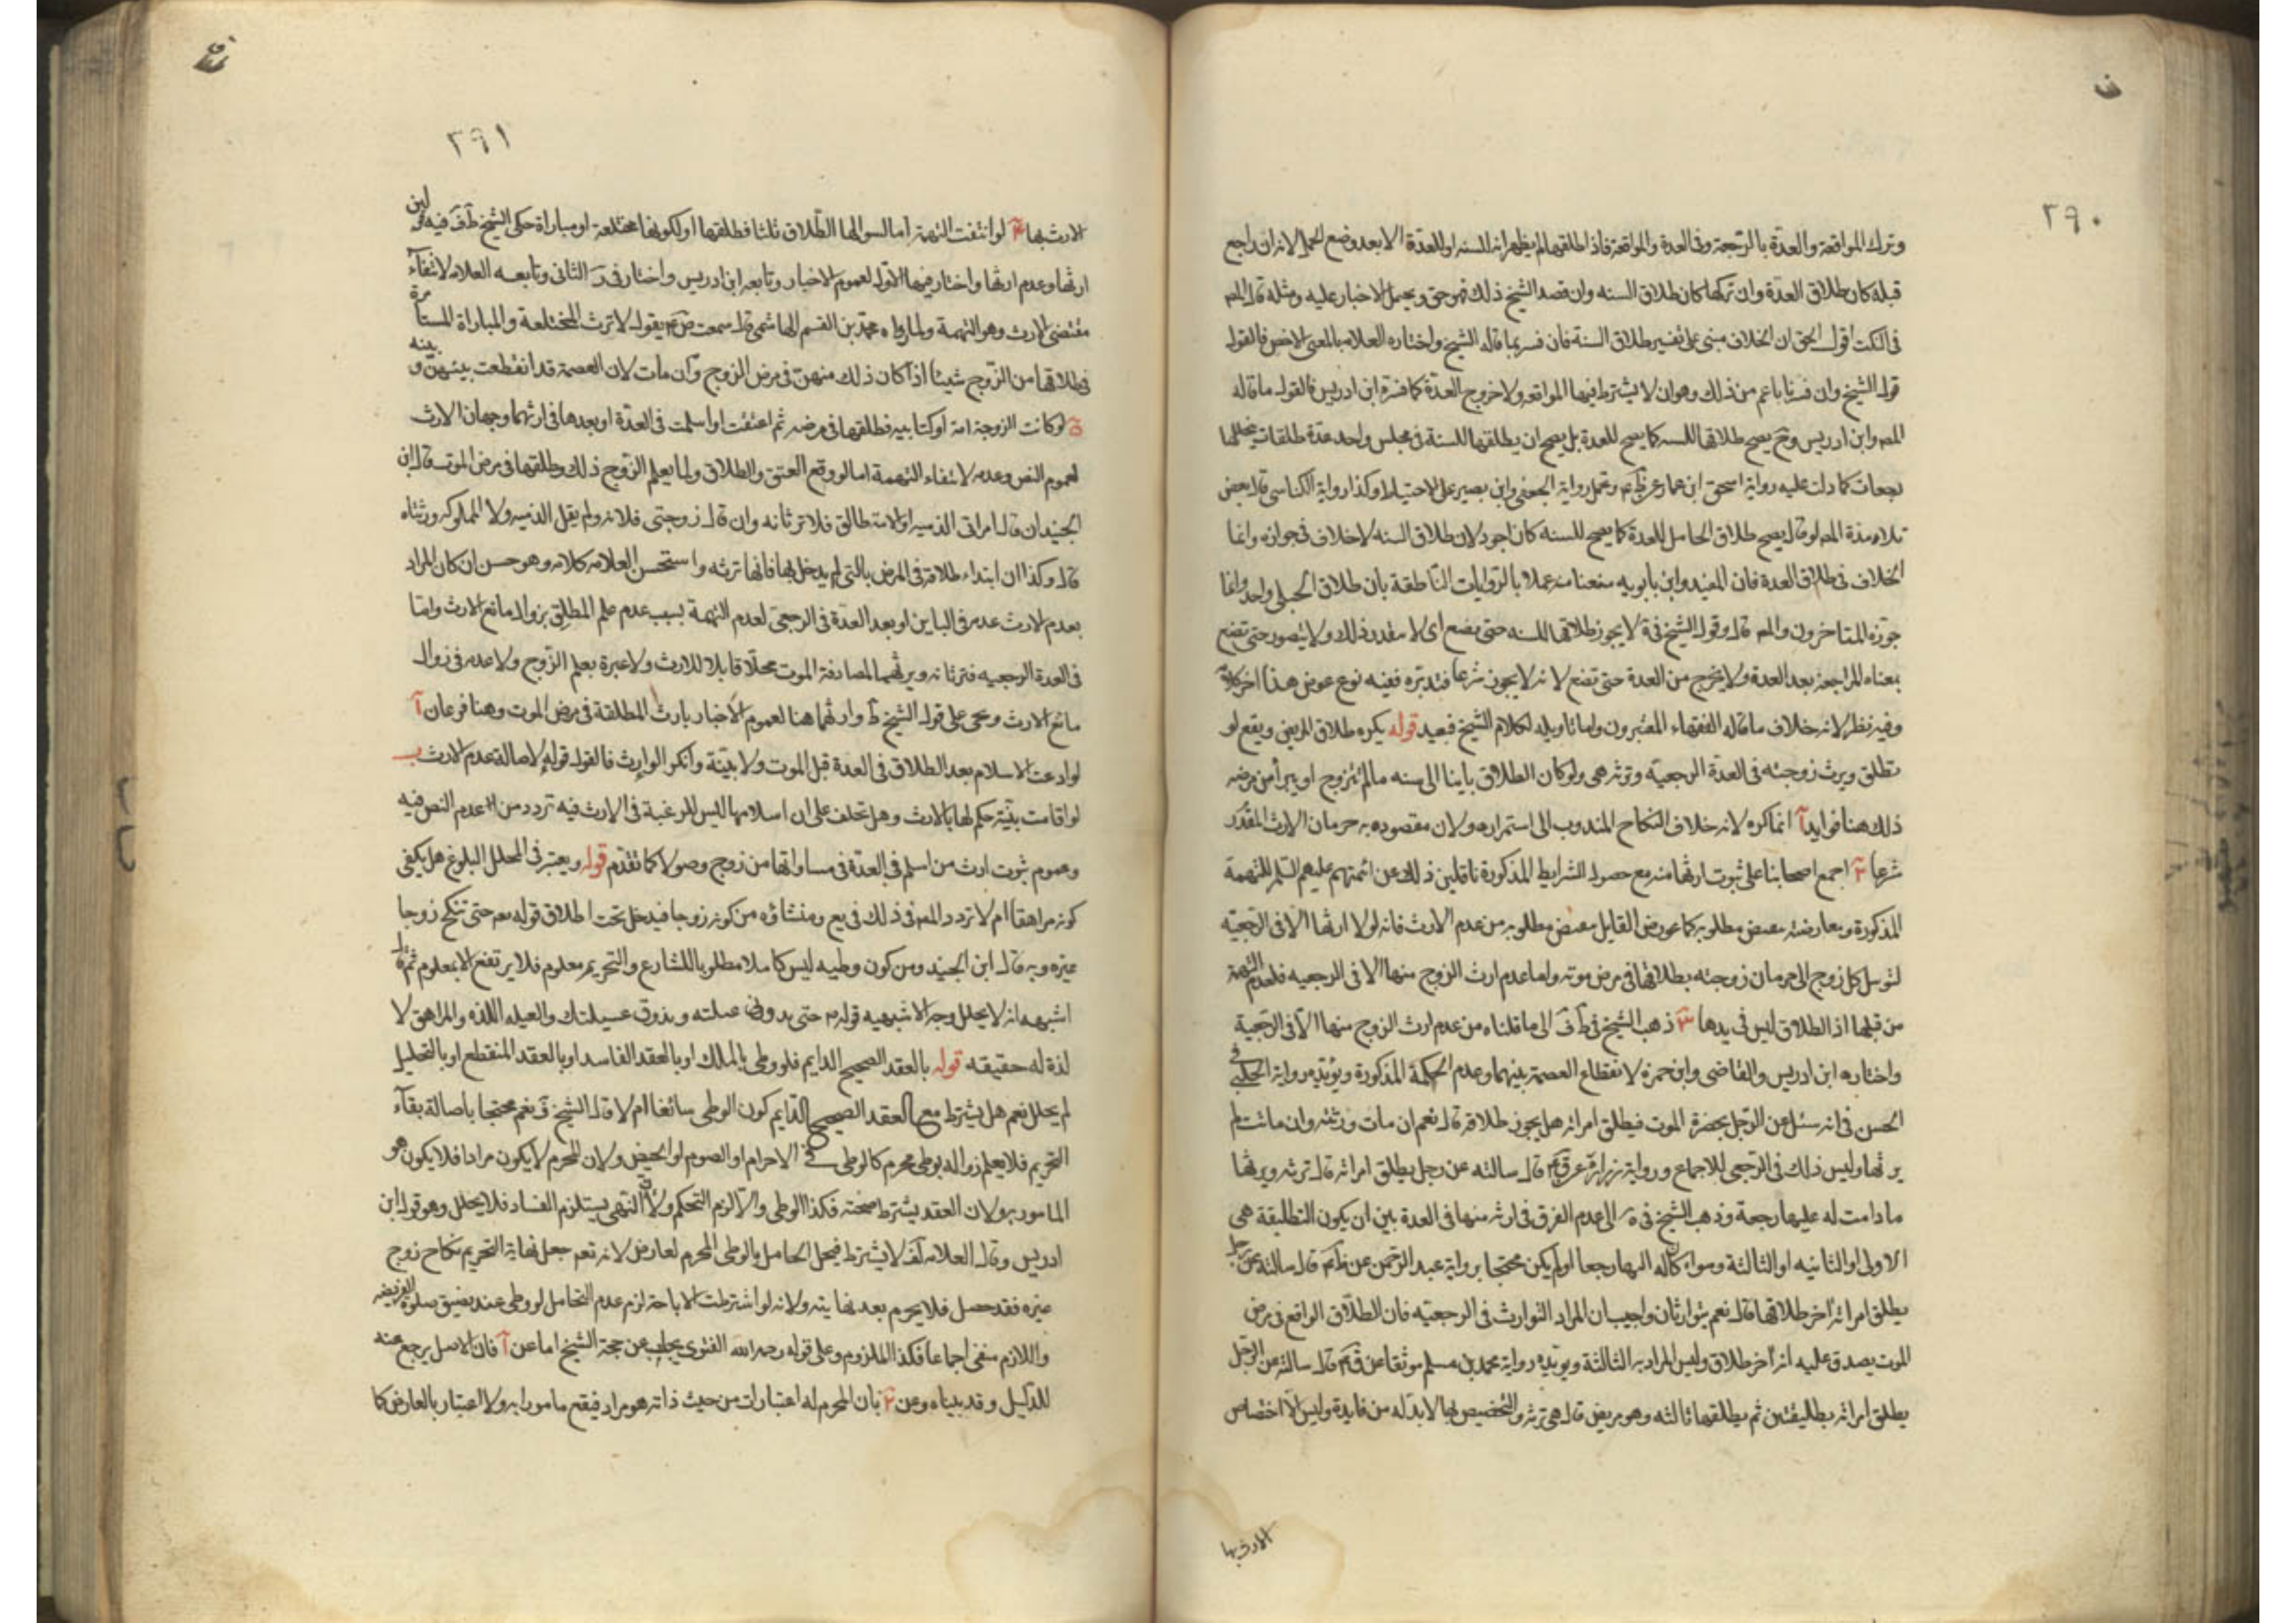 ٢٩٠
وترك المواقعة والعدة بالرجعة وفى العدة والمواقعة فاذا طلقها لم يظهر انه للسنه او للعدة الا بعد وضع الحمل لانه ان راجع
قبله كان طلاق العدة وان تركها كان طلاق السنه وان قصد الشيخ ذلك فهو حق ويحمل الاخبار عليه ومثله قال المص
فى النكت اقول الحق ان الخلاف مبنى على تفسير طلاق السنة فان فسر بما قاله الشيخ واختاره العلامه بالمعنى الاخص فالقول
قول الشيخ وان فسرنا باعم من ذلك وهو ان لا يشترط فيها المواقعه ولا خروج العدة كما فسره ابن ادريس فالقول ما قاله
المص وابن ادريس وح يصح طلاقها للسنه كما يصح للعدة بل يصح ان يطلقها للسنة فى مجلس واحد عدة طلقات يتخللها
رجعات كما دلت عليه رواية اسحق ابن عمار عن ظم ع وتحمل رواية الجعفى وابى بصير على الاحتياط وكذا رواية الكناسى قال بعض
تلامذة المص لو قال يصح طلاق الحامل للعدة كما يصح للسنه كان اجود لان طلاق السنه لا خلاف فى جوازه وانما
الخلاف فى طلاق العدة فان المفيد وابن بابويه منعنا منه عملا بالروايات الناطقة بان طلاق الحبلى واحد وانما
جوزه المتاخرون والمص قال وقول الشيخ فى ية لا يجوز طلاقها للسنه حتى يضع اى لا يتقدر ذلك ولا يتصور حتى تضع
بمعناه المراجعة بعد العدة ولا يخرج من العدة حتى تضع لا انه لا يجوز شرعا فتدبره ففيه نوع غوض هذا اخر كلامه
وفيه نظر لانه خلاف ما قاله الفقهاء المعتبرون واما تاويله لكلام الشيخ فبعيد قوله يكره طلاق المريض ويقع لو
طلق ويرث زوجته فى العدة الرجعية وترثه هى ولو كان الطلاق باينا الى سنه ما لم تتزوج او يبرأ من مرضه
ذلك هنا فوايد آ انما كره لانه خلاف النكاح المندوب الى استمراره ولان مقصوده به حرمان الارث المقدر
شرعا ٢ اجمع اصحابنا على ثبوت ارثها منه مع حصول الشرايط المذكورة ناقلين ذلك عن ائمتهم عليهم السلم للتهمة
المذكورة ومعارضته بنقيض مطلوبه كما عورض القاتل بنقيض مطلوبه من عدم الارث فانه لولا ارثها الا فى الرجعية
لتوسل كل زوج الى حرمان زوجته بطلاقها فى مرض موته واما عدم ارث الزوج منها الا فى الرجعيه فلعدم التهمة
من قبلها اذ الطلاق ليس فى يدها ٣ ذهب الشيخ فى ط وف الى ما قلناه من عدم ارث الزوج منها الا فى الرجعية
واختاره ابن ادريس والقاضى وابن حمزه لانقطاع العصمة بينهما وعدم الحكمة المذكورة ويؤيده رواية الحلبى فى
الحسن فى انه سئل عن الرجل يحضره الموت فيطلق امراته هل يجوز طلاقه قال نعم ان مات ورثته وان ماتت لم
يرثها وليس ذلك فى الرجعى للاجماع ورواية زرارة عن ق ع قال سالته عن رجل يطلق امراته قال ترثه ويرثها
ما دامت له عليها رجعة وذهب الشيخ فى يه الى عدم الفرق فى ارثه منها فى العدة بين ان يكون التطليقة هى
الاولى او الثانيه او الثالثة وسواء كان له اليها رجعا او لم يكن محتجا برواية عبد الرحمن عن ظم ع قال سالته عن رجل
يطلق امراته اخر طلاقها قال نعم يتوارثان واجيب بان المراد التوارث فى الرجعيه فان الطلاق الواقع فى مرض
الموت يصدق عليه انه آخر طلاق وليس المراد به الثالثة ويؤيده رواية محمد بن مسلم موثقا عن ق ع قال سالته عن الرجل
يطلق امراته تطليقتين ثم يطلقها ثالثه وهو مريض قال هى ترثه والتخصيص لها لا بد له من فايدة وليس الا اختصاص
الارث بها
٢٩١
الارث بها ٤ لو انتفت التهمة اما لسوالها الطلاق ثلثا فطلقها او لكونها مختلعه او مباراة حكى الشيخ فى ف فيه قولين
ارثها وعدم ارثها واختار فيها الاول لعموم الاخبار وتابعه ابن ادريس واختار فى ر الثانى وتابعه العلامه لانتفاء
مقتضى الارث وهو التهمة ولما رواه محمد بن القسم الهاشمى قال سمعت ق ع يقول لا ترث المختلعة والمباراة المستأمرة
فى طلاقها من الزوج شيئا اذا كان ذلك منهن فى مرض الزوج وان مات لان العصمة قد انقطعت بينهن وبينه
٥ لو كانت الزوجة امة او كتابيه فطلقها فى مرضه ثم اعتقت او اسلمت فى العدة او بعدها فى ارثهما وجهان الارث
لعموم النص وعدمه لانتفاء التهمة اما لو وقع العتق والطلاق ولما يعلم الزوج ذلك وطلقها فى مرض الموت قال ابن
الجنيد ان قال امراتى الذميه او الامته طالق فلا ترثانه وان قال زوجتى فلانه ولم يقل الذميه ولا المملوكه ورثتاه
قال وكذا ان ابتداء طلاقه فى المرض بالتى لم يدخل بها فانها ترثه واستحسن العلامه كلامه وهو حسن ان كان المراد
بعدم الارث عدمه فى البائن او بعد العدة فى الرجعى لعدم التهمة بسبب عدم علم المطلق بزوال مانع الارث واما
فى العدة الرجعيه فترثانه ويرثهما لمصادفة الموت محلا قابلا للارث ولا عبرة بعلم الزوج ولا عدمه فى زوال
مانع الارث ويجى على قول الشيخ ط وارثهما هنا لعموم الاخبار بارث المطلقة فى مرض الموت وهنا فرعان آ
لو ادعت الاسلام بعد الطلاق فى العدة قبل الموت ولا بينة وانكر الوارث فالقول قوله لاصالة عدم الارث ب
لو اقامت بينة حكم لها بالارث وهل تحلف على ان اسلامها ليس للرغبة فى الارث فيه تردد من عدم النص فيه
وعموم ثبوت ارث من اسلم فى العدة فى مساواتها من زوج وصولا كما تقدم قوله ويعتبر فى المحلل البلوغ هل يكفى
كونه مراهقا ام لا تردد المص فى ذلك فى يع ومنشاؤه من كونه زوجا فيدخل تحت اطلاق قوله تعم حتى تنكح زوجا
غيره وبه قال ابن الجنيد ومن كون وطيه ليس كاملا مطلوبا للشارع والتحريم معلوم فلا يرتفع الا بمعلوم ثم قال
اشبهه انه لا يحلل وجه الاشبهيه قوله ع م حتى يذوق عسلته ويذوق عسيلتك والعسيله اللذه والمراهق لا
لذة له حقيقه قوله بالعقد الصحيح الدايم فلو وطى بالملك او بالعقد الفاسد او بالعقد المنقطع او بالتحليل
لم يحلل نعم هل يشترط مع العقد الصحيح الدايم كون الوطى سائغا ام لا قال الشيخ ف نعم محتجا باصالة بقاء
التحريم فلا يعلم زواله بوطى محرم كالوطى فى الاحرام او الصوم او الحيض ولان المحرم لا يكون مرادا فلا يكون هو
المامور به ولان العقد يشترط صحته فكذا الوطى والا لزم التحكم ولان النهى يستلزم الفساد فلا يحلل وهو قول ابن
ادريس وقال العلامه لف لا يشترط فيحل الحامل بالوطى المحرم لعارض لانه تعم جعل نهاية التحريم نكاح زوج
غيره فقد حصل فلا يحرم بعد نهايته ولانه لو اشترطت الاباحة لزم عدم التحامل لو وطى عند بضيق صلوة الفريضه
واللازم منفى اجماعا فكذا الملزوم وعلى قوله رحمه الله الفتوى يجاب عن حجة الشيخ اما عن آ فان الاصل يرجع عنه
للدليل وقد بيناه وعن ٢ بان المحرم له اعتبارات من حيث ذاته هو مراد فيقع مامورا به ولا اعتبار بالعارض كما